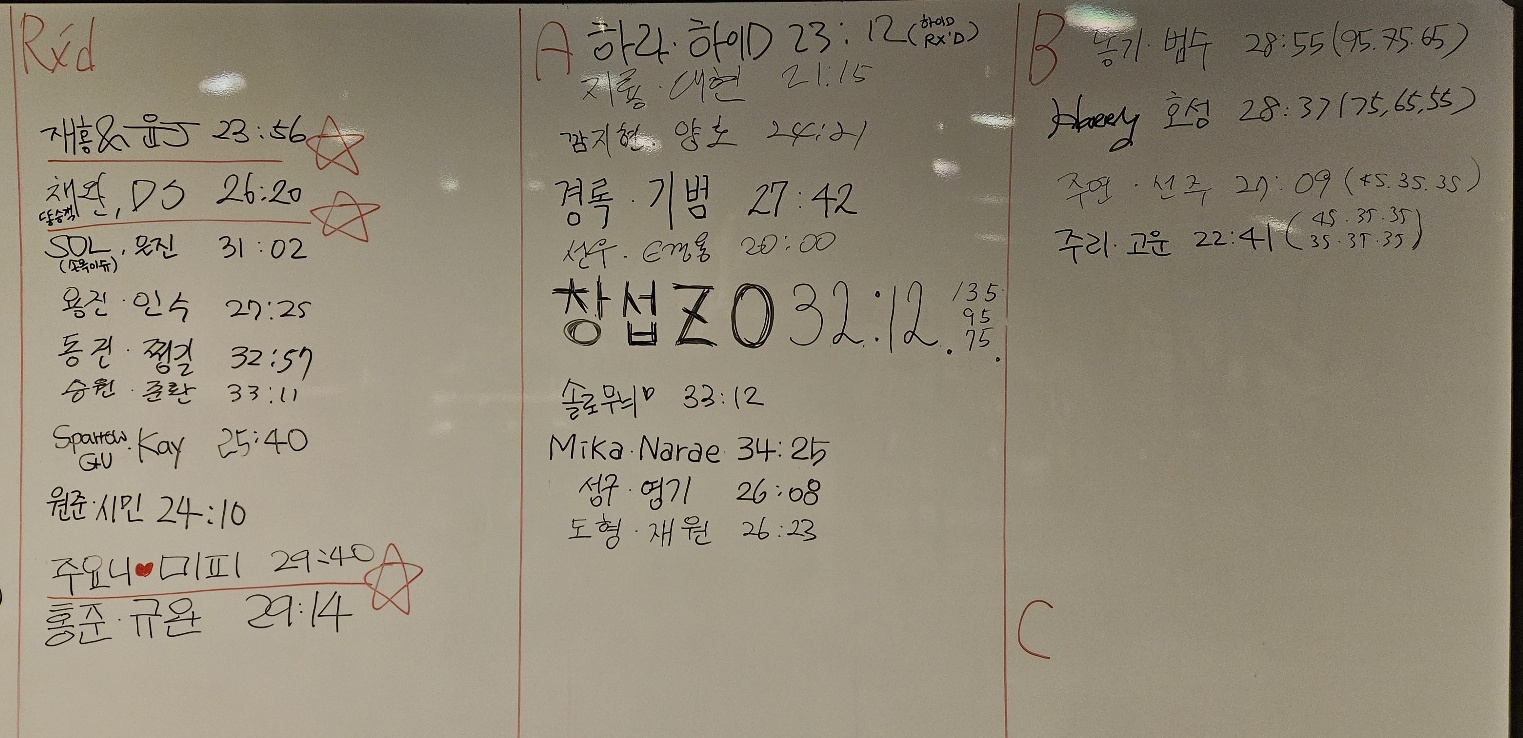 Rx'd
재홍 & 윤J 23:56
채완, DS 26:20
SOL, 웃진 31:02
용진 · 인수 27:25
동진 · 찡걸 32:57
승원 · 준환 33:11
Sparrow Kay 25:40
GU
원준 · 시민 24:10
주요니♥미피 29:40
홍준 · 규완 29:14
A 하라 · 하이D 23:12 (하이D RX'D)
지룡 · 대현 21:15
깜지현, 양호 24:21
경록 · 기범 27:42
선우 · 20:00
창섭ZO 32:12. 135
95
75.
솔로무늬♡ 33:12
Mika · Narae 34:25
성구 · 영기 26:08
도형 · 재원 26:23
B 농기 · 범수 28:55 (95.75.65)
Harry 호성 28:37 (75,65,55)
주연 · 선주 27:09 (45.35.35)
주리 · 고운 22:41 (45.35.35
35.35.35)
C